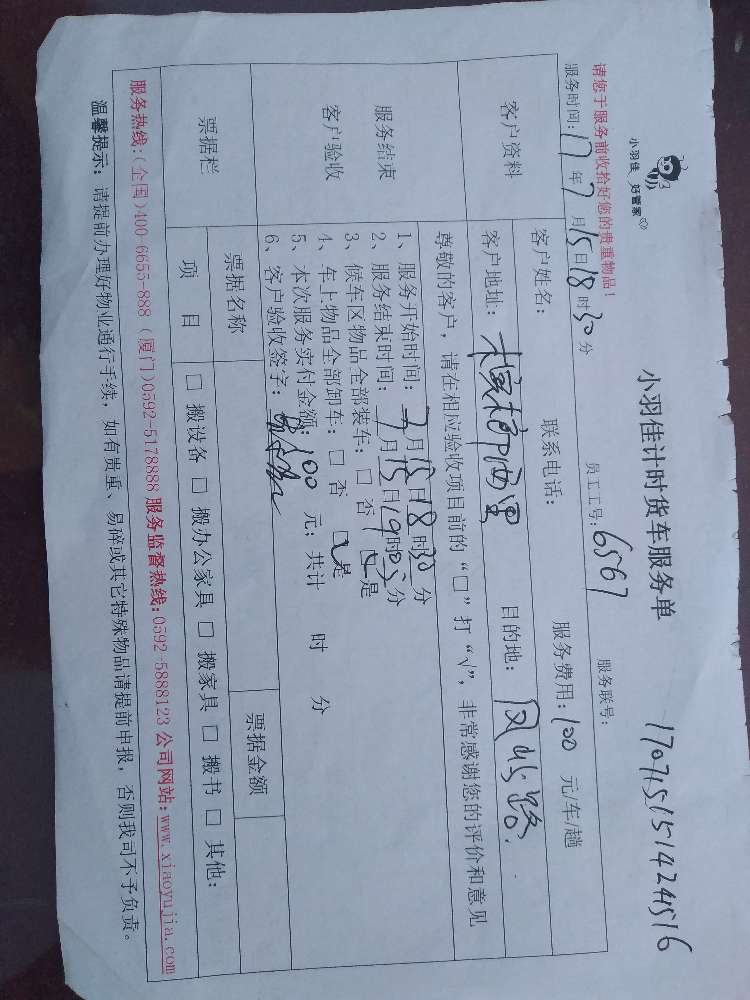 小羽佳 好管家
小羽佳计时货车服务单
1707151514241516
请您于服务前收拾好您的贵重物品！
服务时间：17年7月15日18时30分 员工工号：6567 服务联号：
客户资料
客户姓名： 联系电话： 服务费用：100元/车/趟
客户地址： 西里 目的地：
服务结束
客户验收
尊敬的客户，请在相应验收项目前的“□”打“√”，非常感谢您的评价和意见
1、服务开始时间：7月15日18时30分
2、服务结束时间：7月15日19时03分
3、候车区物品全部装车：□ 否 ☑是
4、车上物品全部卸车：□ 否 ☑是
5、本次服务实付金额：100元；共计 时 分
6、客户验收签字：
票据栏
票据名称 票据金额
项 目 □ 搬设备 □ 搬办公家具 □ 搬家具 □ 搬书 □ 其他：
服务热线:(全国)400-6655-888 (厦门)0592-5178888 服务监督热线:0592-5888123 公司网站:www.xiaoyujia.com
温馨提示：请提前办理好物业通行手续，如有贵重、易碎或其它特殊物品请提前申报，否则我司不予负责。